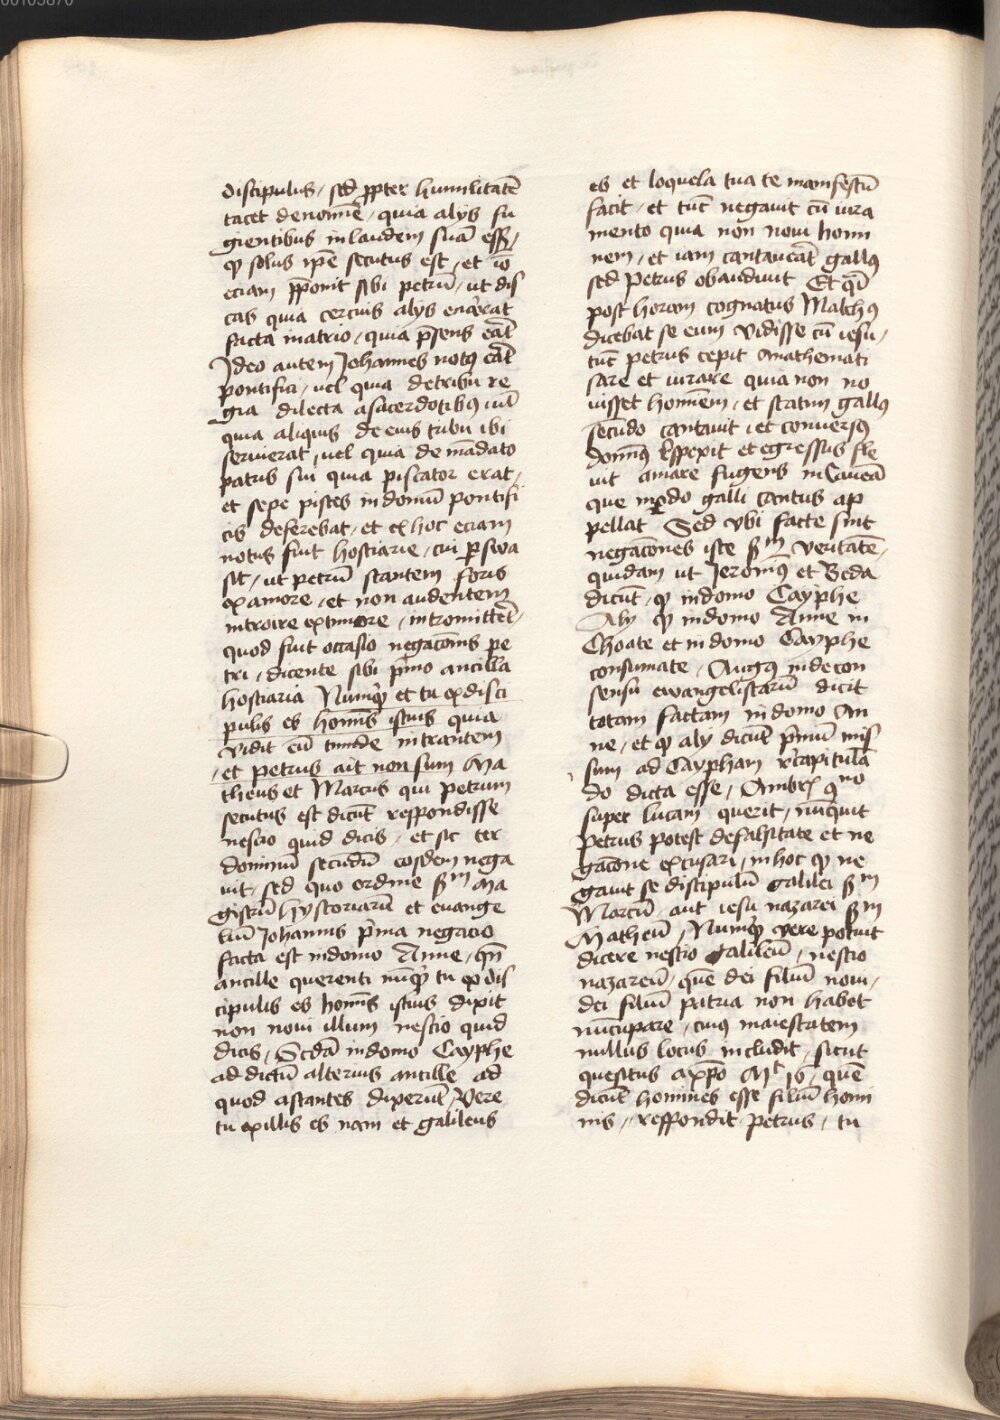 00103870
discipulus / sed ꝓpter humilitatē
tacet de nomīe / quia alijs fu
gientibus in laudem suā essꝫ /
ꝙ solus ip̄e secutus est / et iō
eciam p̄ponit sibi petrū / ut dis
cas quia cercius alijs enarrat
facta in atrio / quia p̄sens erat
Ideo autem Johannes notꝰ erat
pontifici / uel quia de tribu re
gia dilecta a sacerdotibꝰ
quia aliquis de eius tribu ibi
seruierat / uel quia de mādato
patris sui quia piscator erat /
et sepe pisces in domū pontifi
cis deferebat / et ex hoc eciam
notus fuit hostiarie / cui ꝑswa
sit / ut petrū stantem foris
ex amore / et non audentem
introire ex timore / intromitteret
quod fuit occasio negacōnis pe
tri / dicente sibi p̄mo ancilla
hostiaria Numqͥd et tu ex disci
pulis es homīs istius quia
vidit eū timide intrantem
/ et petrus ait non sum Ma
theus et Marcus qui petrum
secutus est dicūt respondisse
nescio quid dicis / et sic ter
dominū secūdū eosdem nega
uit / sed quo ordine sm̄ Ma
gistrū hystoriarū et euange
liū Johannis p̄ma negacio
facta est in domo Anne / qn̄
ancille querenti nūqͥd tu ex dis
cipulis es homīs istius dixit
non noui illum nescio quid
dicis / Scd̄a in domo Cayphe
ad dictū alterius ancille ad
quod astantes dixerūt / Vere
tu ex illis es nam et galileus
es et loquela tua te manifestū
facit / et tūc negauit cū iura
mento quia non noui homi
nem / et iam cantauerat gallꝰ
sed Petrus obaudiuit Et q̄i
post horam cognatus Malchꝰ
dicebat se eum vidisse cū iesu /
tūc petrus cepit anathemati
sare et iurare quia non no
uisset homīem / et statim gallꝰ
secūdo cantauit / et conuersꝰ
domīꝰ respexit et egressus fle
uit amare fugens in Caueā
que modo galli cantus ap
pellat Sed vbi facte sint
negacōnes iste sm̄ veritatē /
quidam ut Jeronimꝰ et Beda
dicūt / ꝙ in domo Cayphe
Alij ꝙ in domo Anne in
choate et in domo Cayphe
consumate / Augꝰ in de con
sensu ewangelistarū dicit
totam factam in domo An
ne / et ꝙ alij dicūt p̄mū mis
sum ad Caypham recapitulā
do dicta esse / Ambrꝰ
super lucam querit / nūquit
Petrus potest de falsitate et ne
gacōne excusari / in hoc ꝙ ne
gauit se discipulū galilei sm̄
Marcū / aut iesu nazarei sm̄
Matheū / Numqͥd vere potuit
dicere nescio galileū / nescio
nazareū / quē dei filiū noui /
dei filiū patria non habet
nūcupare / cuius maiestatem
nullus locus includit / sicut
quesitus a xpō Mt 16 / quē
dicūt homines esse filiū homi
nis / respondit Petrus / tu